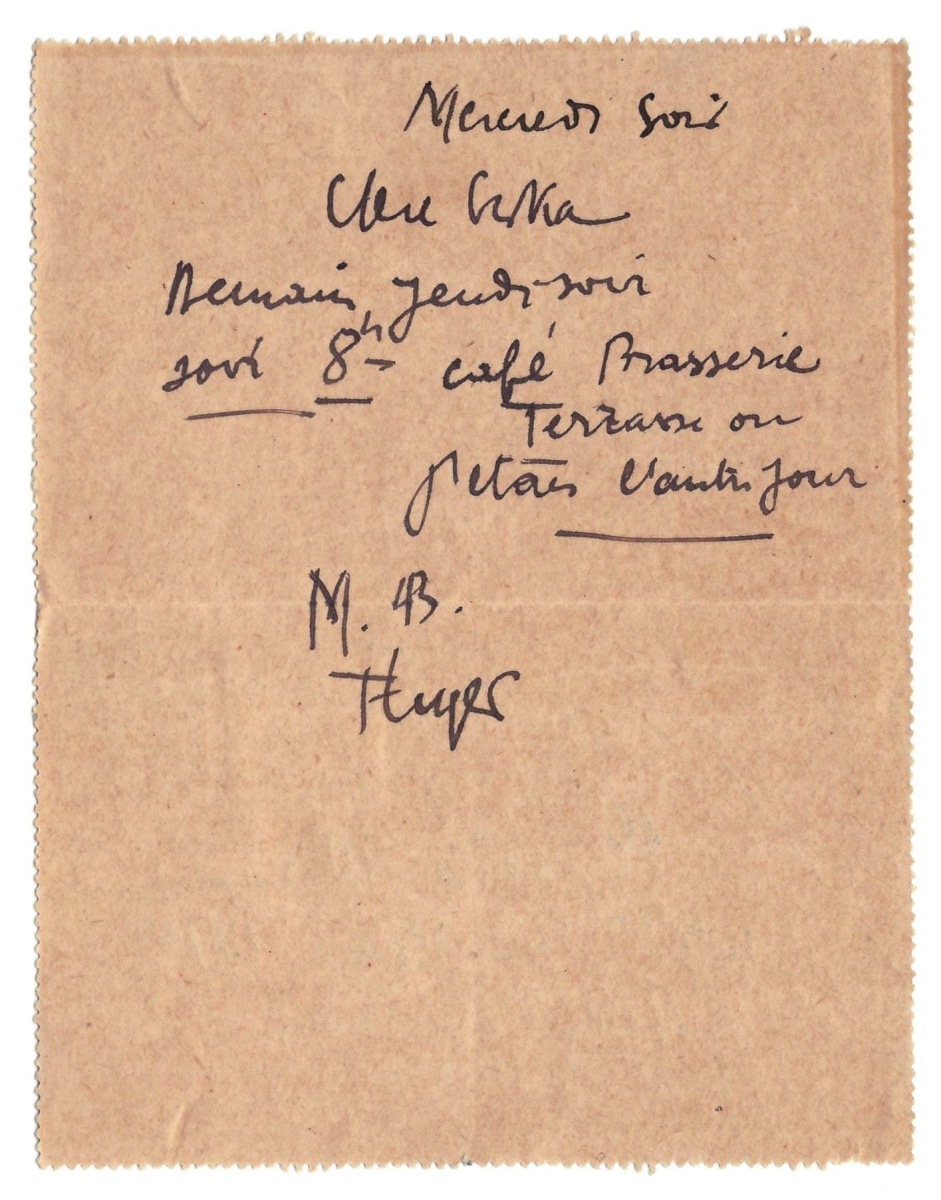 Mercredi soir
Chère
Demain jeudi soir
soir 8h café Brasserie
Terrasse ou
j'étais l'autre jour
M. B.